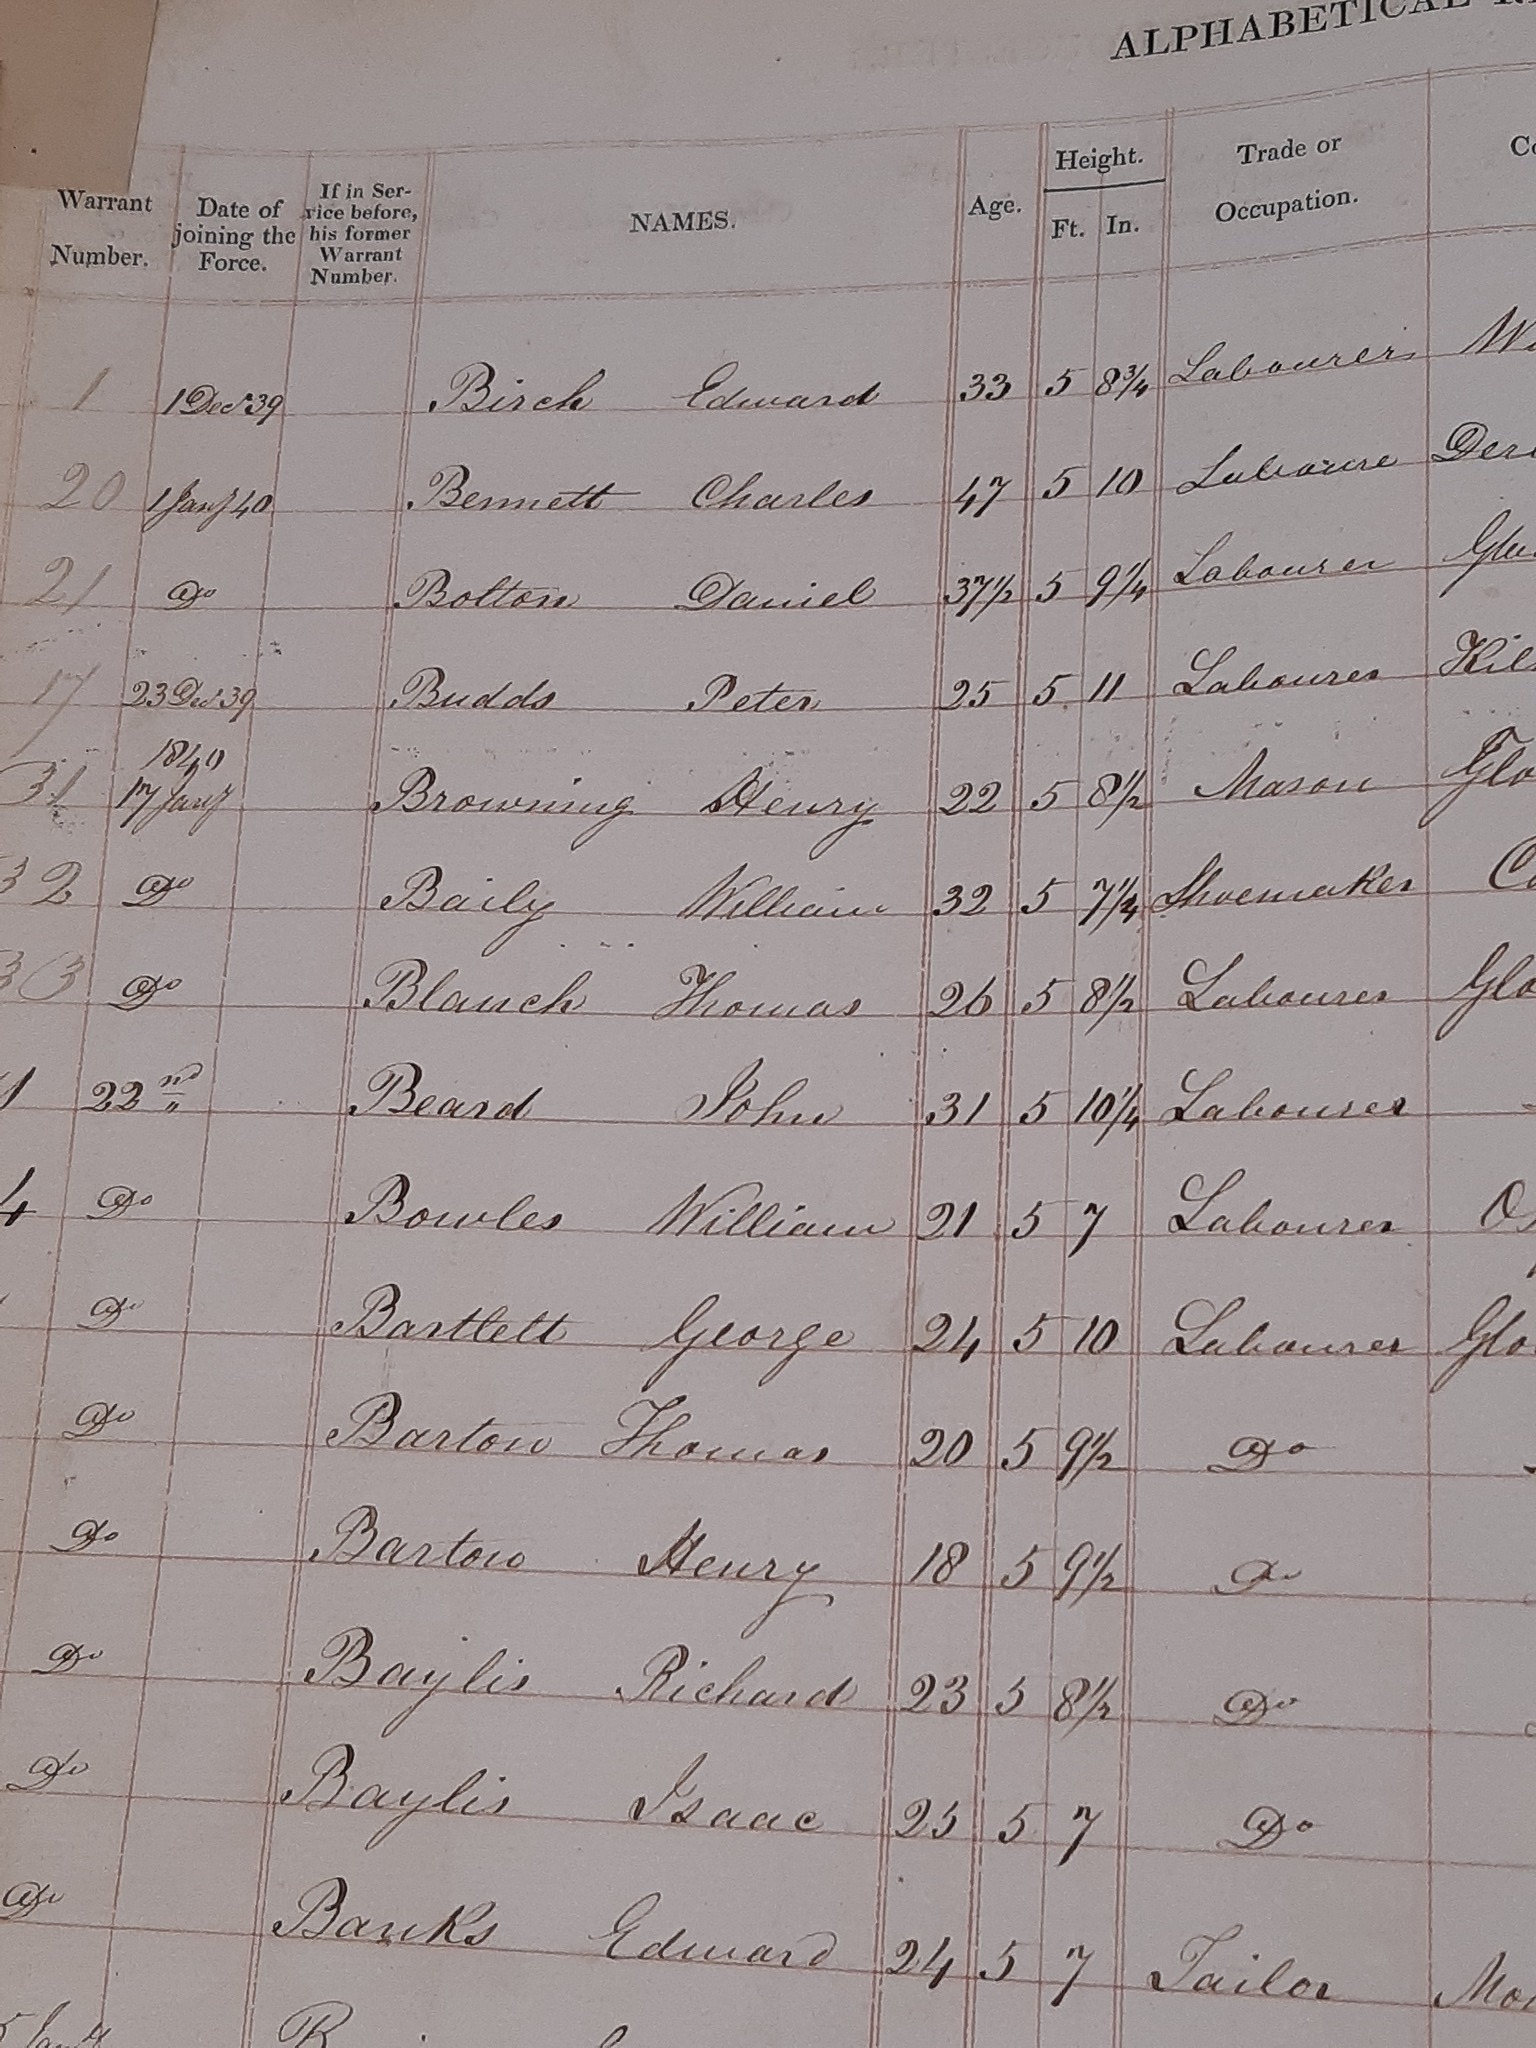 ALPHABETICAL
Warrant Number. Date of joining the Force. If in Service before, his former Warrant Number. NAMES. Age. Height. Ft. In. Trade or Occupation.
1 1 Decr 39 Birch Edward 33 5 8¾ Labourer
20 1 Jany 40 Bennett Charles 47 5 10 Laboure
21 Do Bolton Daniel 37½ 5 9¼ Labourer
17 23 Decr 39 Budds Peter 25 5 11 Labourer
31 1840 17 Jany Browning Henry 22 5 8½ Mason
32 Do Baily William 32 5 7¼ Shoemaker
33 Do Blanch Thomas 26 5 8½ Labourer
22nd " Beard John 31 5 10¼ Labourer
Do Bowles William 21 5 7 Labourer
Do Bartlett George 24 5 10 Labourer
Do Barton Thomas 20 5 9½ Do
Do Barton Henry 18 5 9½ Do
Do Baylis Richard 23 5 8½ Do
Do Baylis Isaac 25 5 7 Do
Do Banks Edward 24 5 7 Tailor